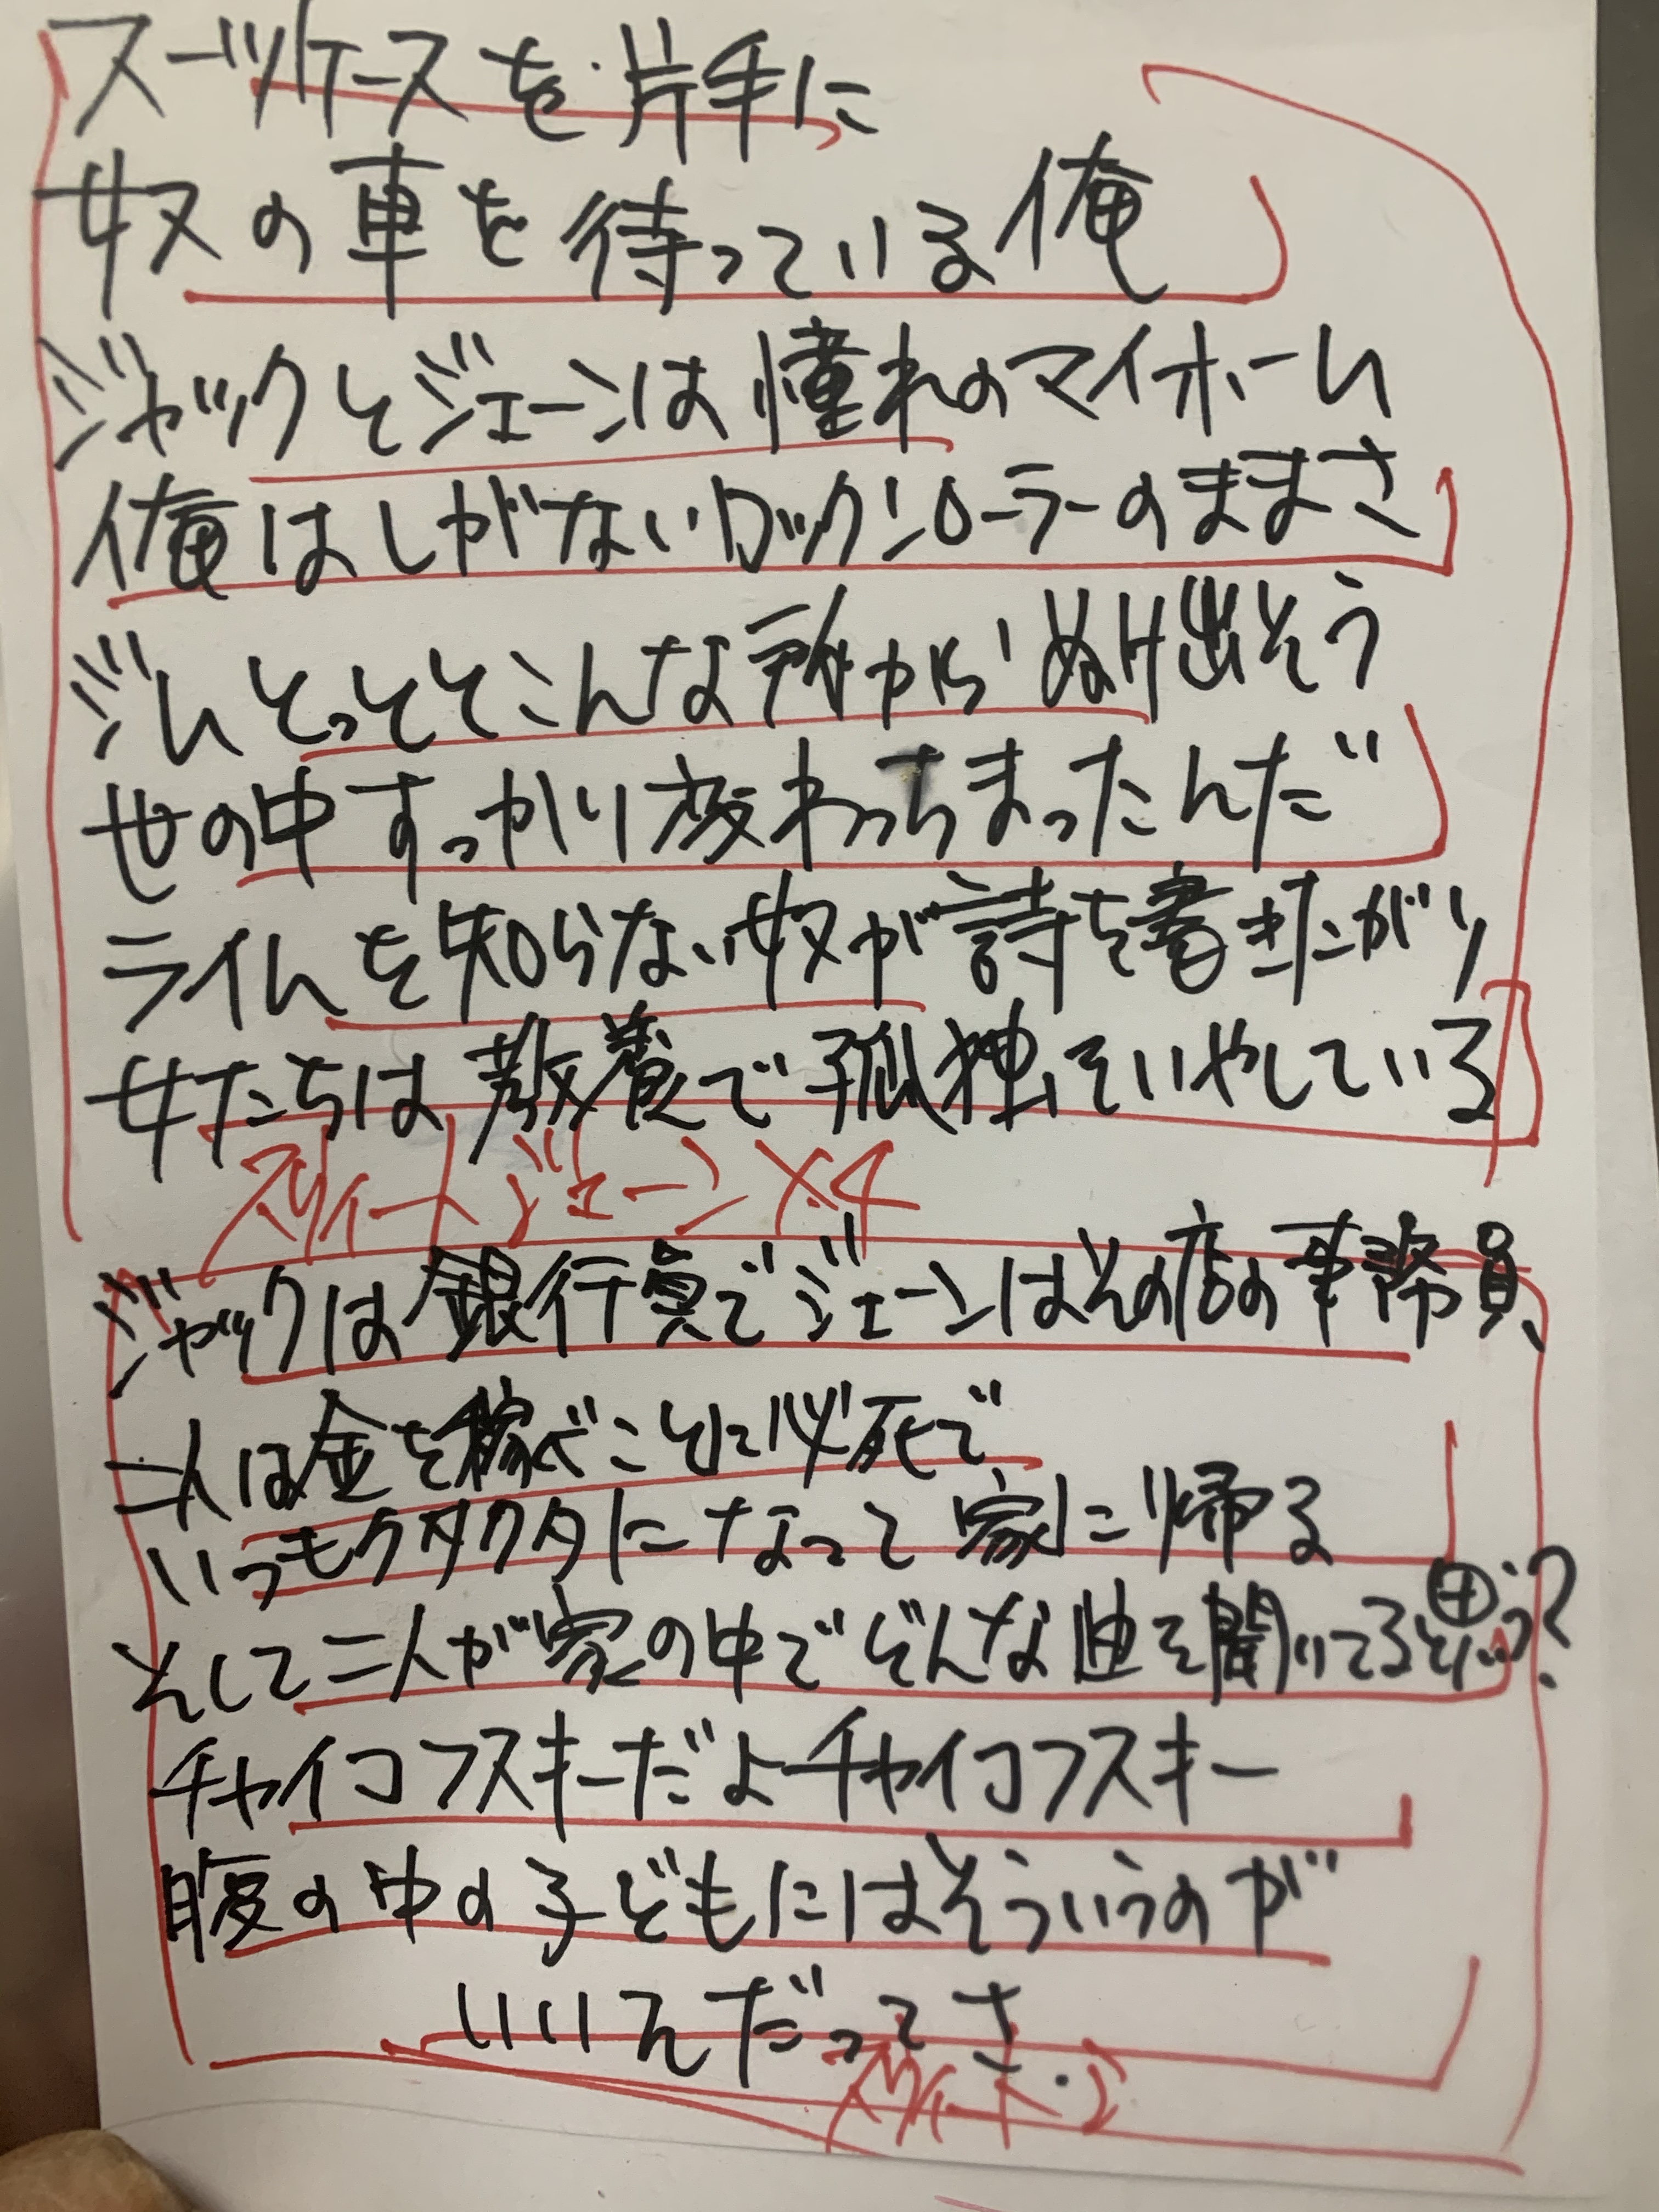 スーツケースを片手に
奴の車を待っている俺
ジャックとジェーンは憧れのマイホーム
俺はしがないロックンローラーのままさ
ジムとっととこんな所からぬけ出そう
世の中すっかり変わっちまったんだ
ライムを知らない奴が詩を書きたがり
女たちは教養で孤独をいやしている
スウィートジェーン×4
ジャックは銀行員でジェーンはその店の事務員、
二人は金を稼ぐことに必死で
いつもクタクタになって家に帰る
そして二人が家の中でどんな曲を聞いてると思う?
チャイコフスキーだよチャイコフスキー
腹の中の子どもにはそういうのが
いいんだってさ.
スウィート